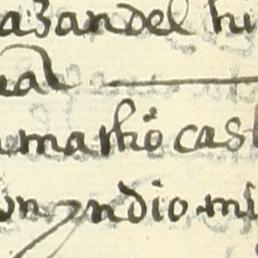 azandel hi
nal
martiō cast
on yndio mi